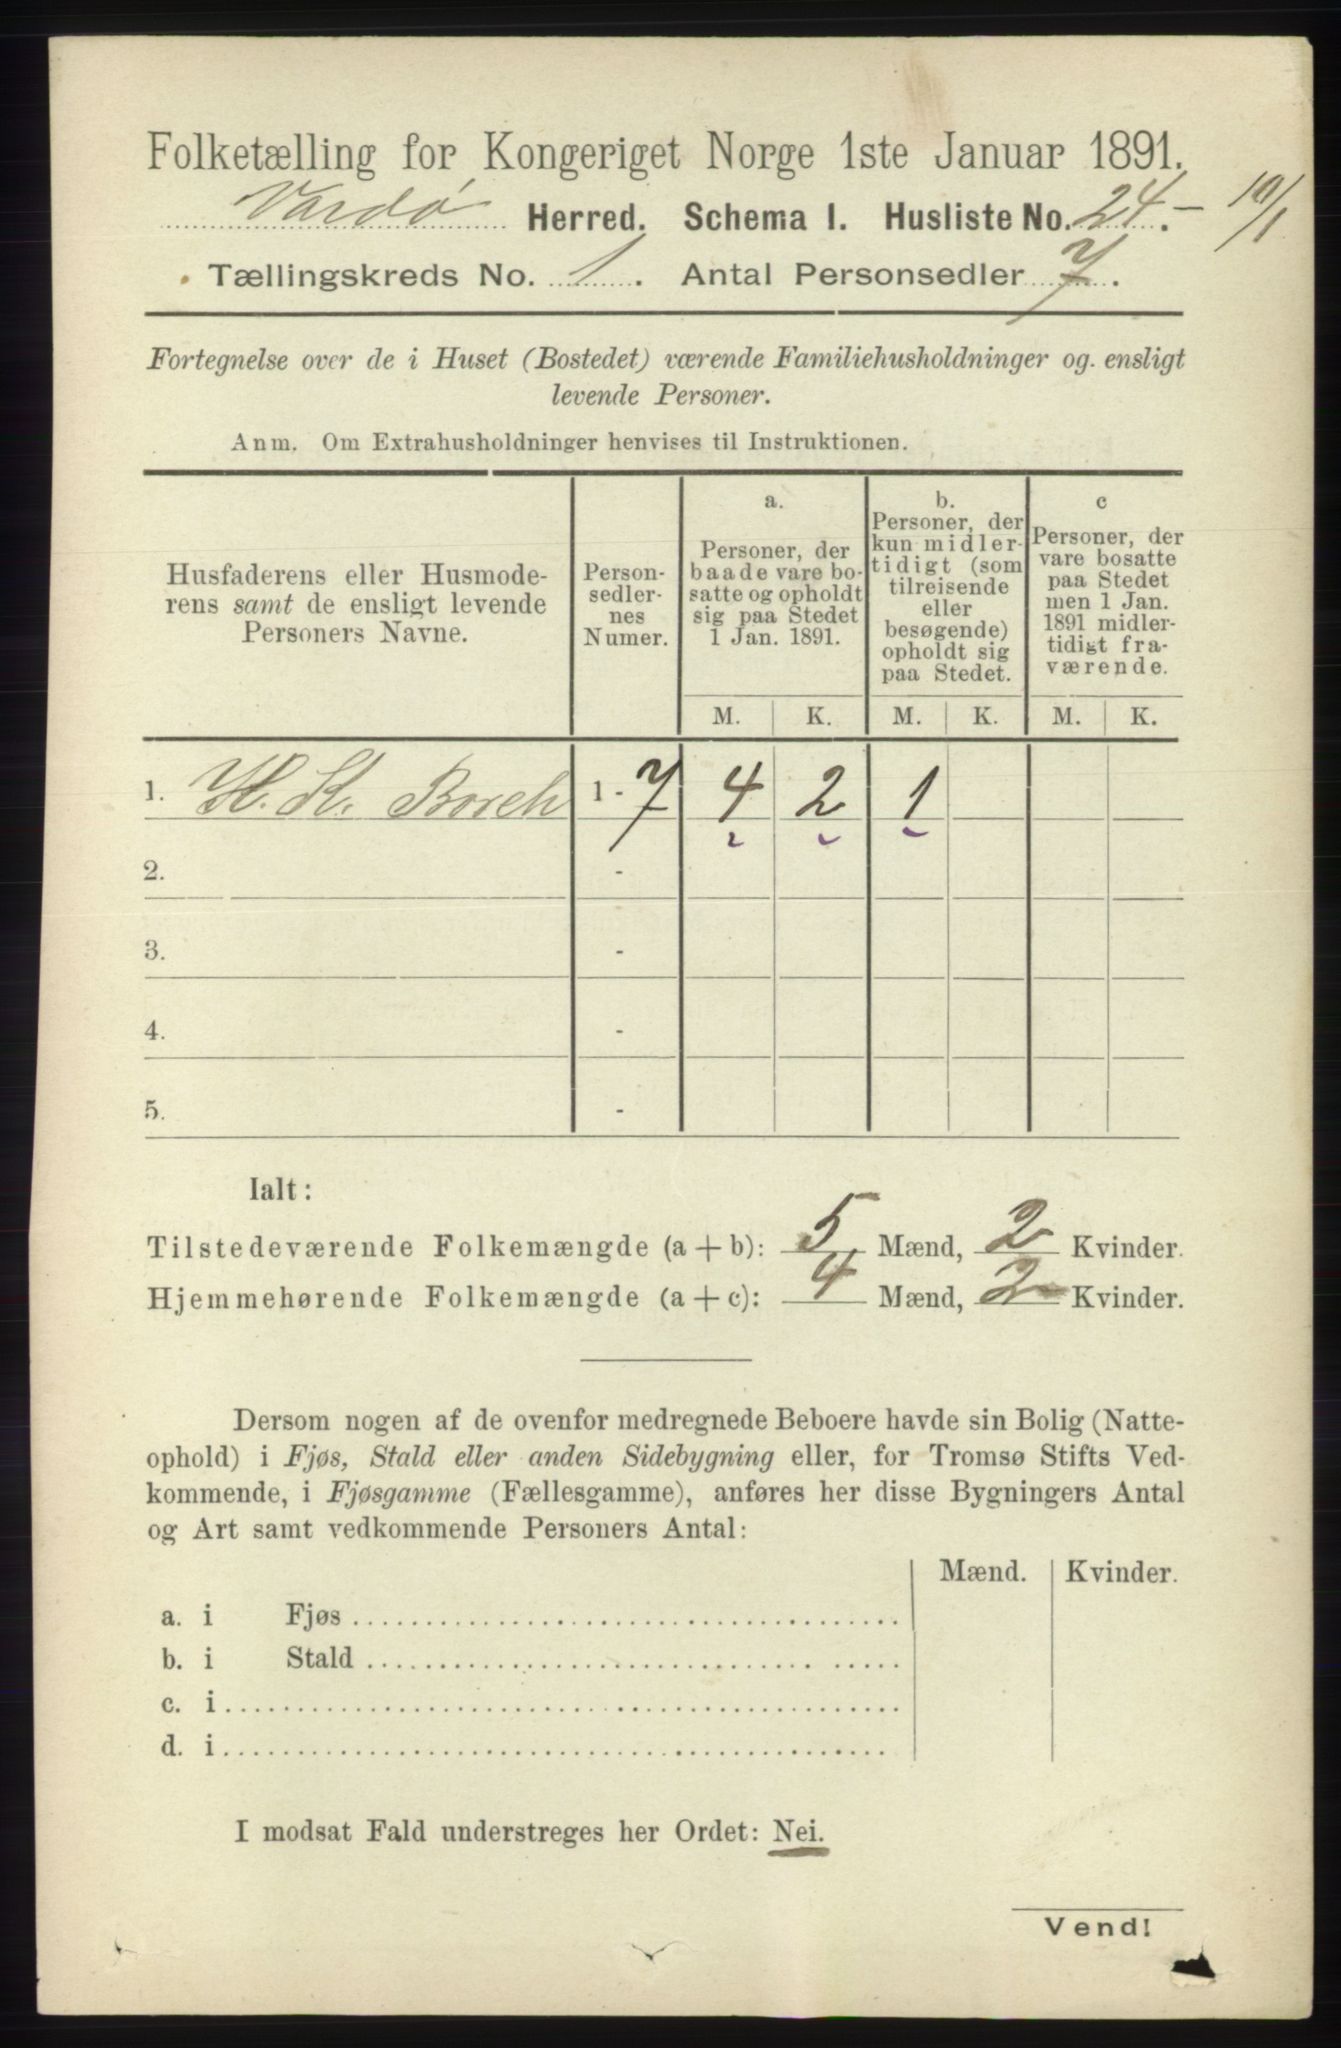 Folketælling for Kongeriget Norge 1ste Januar 1891.
Vardø Herred. Schema I. Husliste No. 24.- 10/1
Tællingskreds No. 1. Antal Personsedler 7.
Fortegnelse over de i Huset (Bostedet) værende Familiehusholdninger og ensligt
levende Personer.
Anm. Om Extrahusholdninger henvises til Instruktionen.
Husfaderens eller Husmode-
rens samt de ensligt levende
Personers Navne.
Person-
sedler-
nes
Numer.
a.
Personer, der
baade vare bo-
satte og opholdt
sig paa Stedet
1 Jan. 1891.
M. K.
b.
Personer, der
kun midler-
tidigt (som
tilreisende
eller
besøgende)
opholdt sig
paa Stedet.
M. K.
c
Personer, der
vare bosatte
paa Stedet
men 1 Jan.
1891 midler-
tidigt fra-
værende.
M. K.
1. H. H. Borch 1 - 7 4 2 1
2. -
3. -
4. -
5. -
Ialt:
Tilstedeværende Folkemængde (a + b): 5 Mænd, 2 Kvinder.
Hjemmehørende Folkemængde (a + c): 4 Mænd, 2 Kvinder.
Dersom nogen af de ovenfor medregnede Beboere havde sin Bolig (Natte-
ophold) i Fjøs, Stald eller anden Sidebygning eller, for Tromsø Stifts Ved-
kommende, i Fjøsgamme (Fællesgamme), anføres her disse Bygningers Antal
og Art samt vedkommende Personers Antal:
Mænd. Kvinder.
a. i Fjøs
b. i Stald
c. i
d. i
I modsat Fald understreges her Ordet: Nei.
Vend!